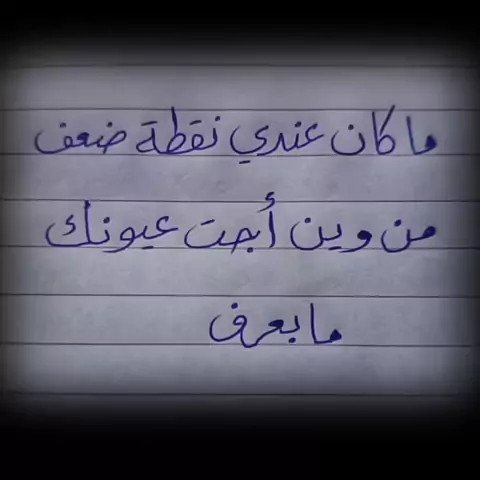 ما كان عندي نقطة ضعف
من وين أجت عيونك
ما بعرف